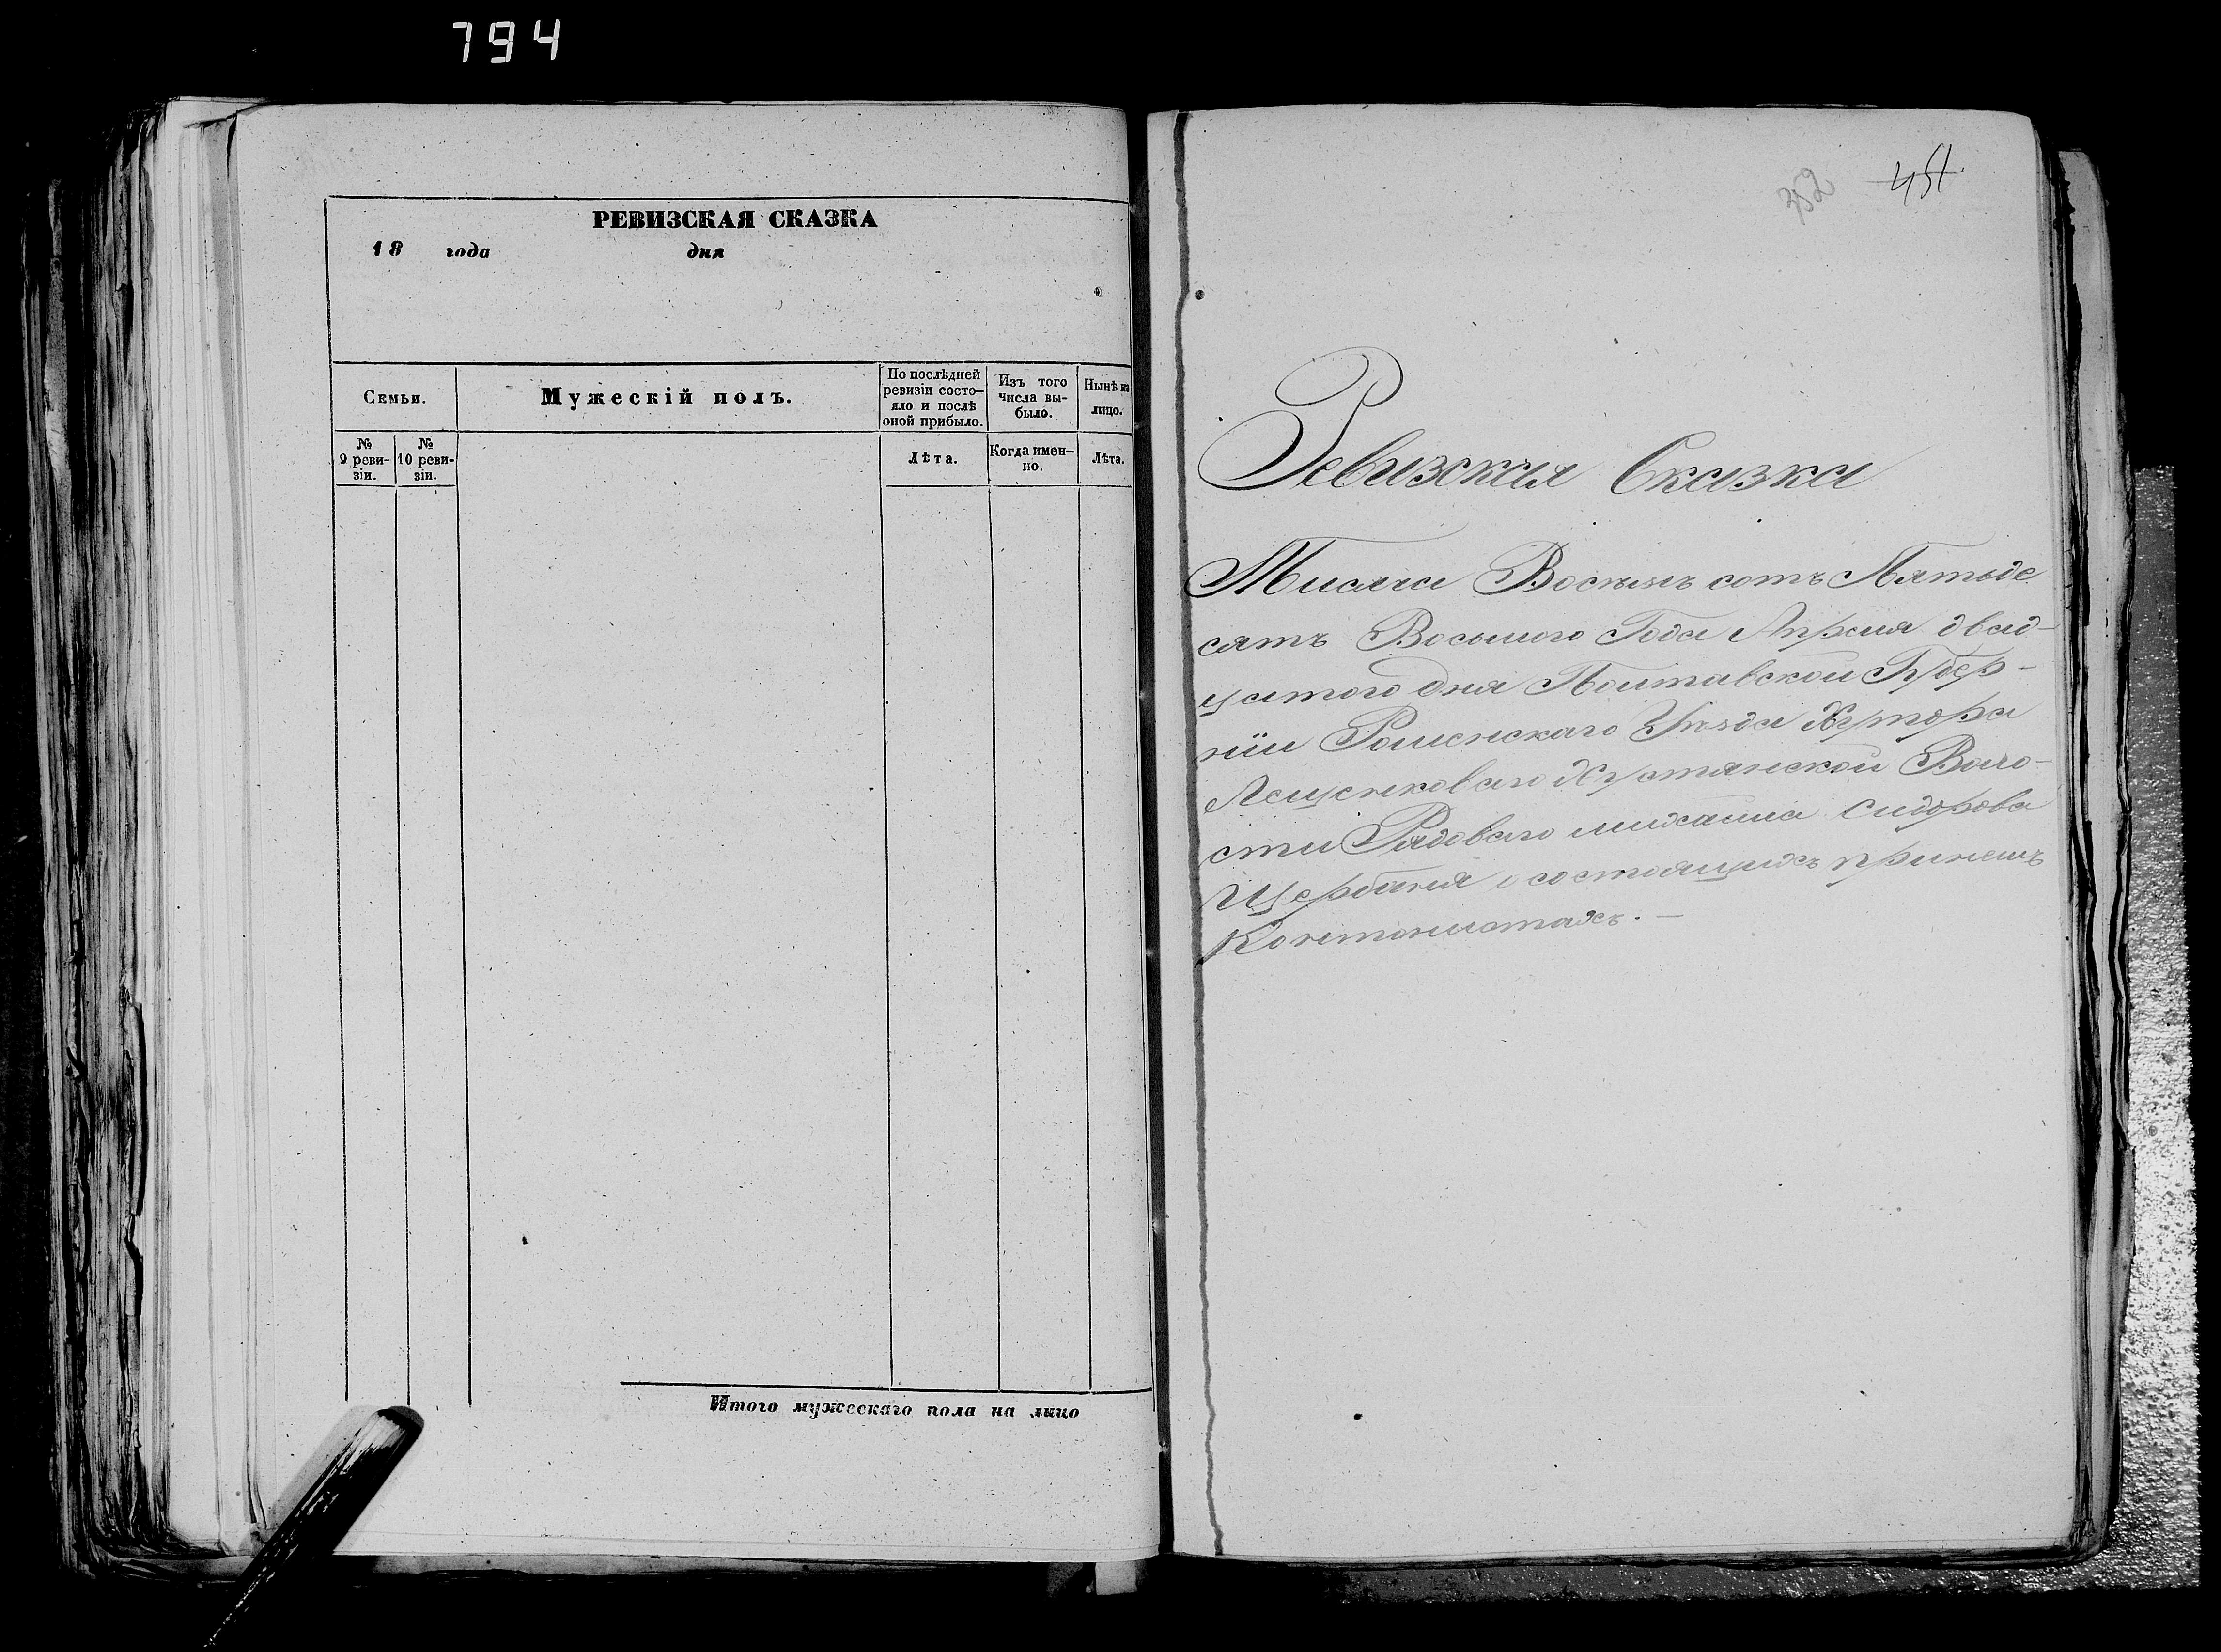 794
РЕВИЗСКАЯ СКАЗКА
18 года дня
Семьи.
Мужескій полъ.
По послѣдней
ревизіи состо-
яло и послѣ
оной прибыло.
Изъ того
числа вы-
было.
Нынѣ на
лицо.
№
9 реви-
зіи.
№
10 реви-
зіи.
Лѣта.
Когда имен-
но.
Лѣта.
Итого мужескаго пола на лицо
352
Ревизская Сказка
Тисяча Восемъ сотъ Пятьде
сятъ Восьмого Года Апреля двад-
цатого дня Полтавской Губер-
нїи Роменскаго Уѣзда Хутора
Лещенковаго Хустянской Воло-
сти Рядоваго михаила Сидорова
Щербаня о состоящихъ принемъ
Контонистахъ. —